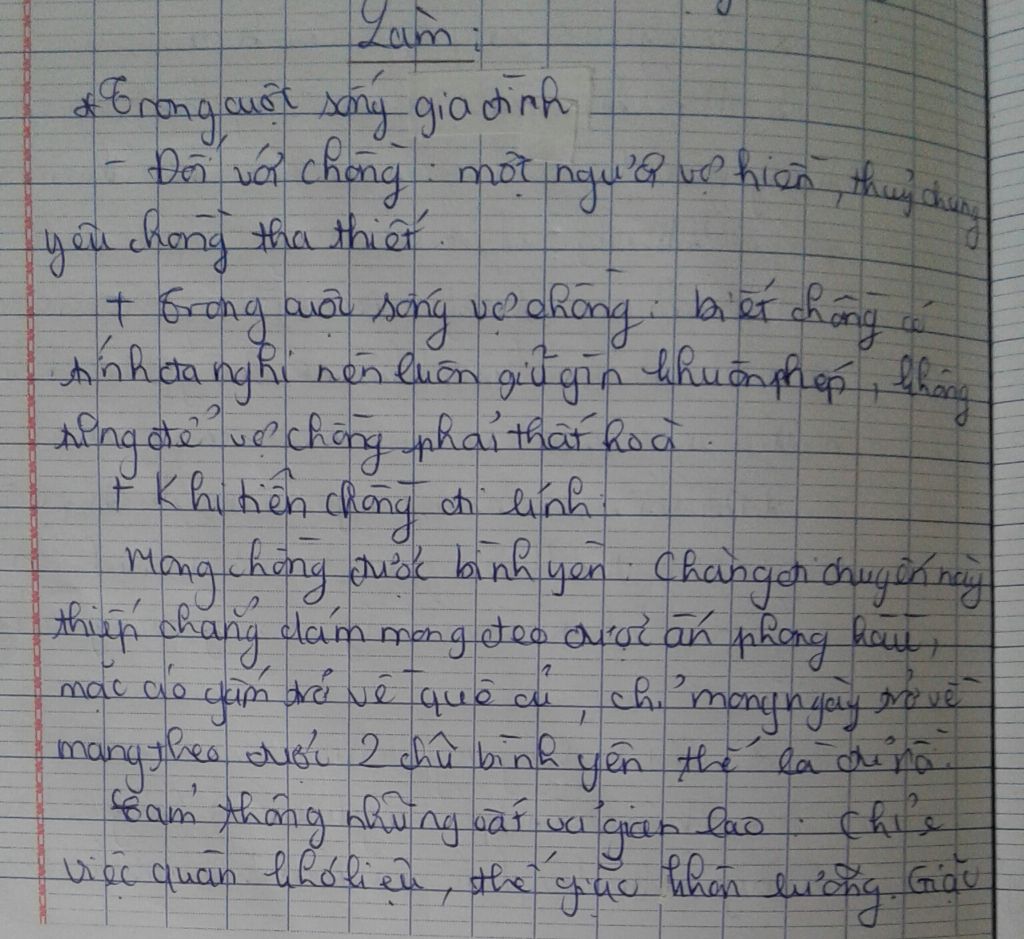 Làm:
* Trong cuột sống gia đình
- Đối với chồng : một người vợ hiền, thuỷ chung
yêu chồng tha thiết.
+ Trong cuộc sống vợ chồng : biết chồng có
tính đa nghi nên luôn giữ gìn khuôn phép, không
từng để vợ chồng phải thất hoà.
+ Khi tiễn chồng đi lính:
Mong chồng được bình yên. Chàng đi chuyến này
thiếp chẳng dám mong đeo được ấn phong hầu,
mặc áo gấm trở về quê cũ, chỉ mong ngày trở về
mang theo được 2 chữ bình yên thế là đủ rồi.
Cảm thông những vất vả gian lao. Chỉ e
việc quân khó liệu, thế giặc khôn lường. Giặc